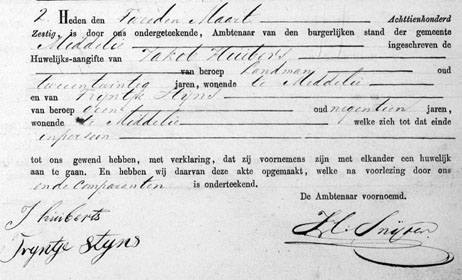 2. Heden den Tweeden Maart Achttienhonderd
Zestig, is door ons ondergeteekende, Ambtenaar van den burgerlijken stand der gemeente
Middelie ingeschreven de
Huwelijks-aangifte van Jakob Huiberts
van beroep Landman oud
tweeentwintig jaren, wonende te Middelie
en van Tryntje Styns
van beroep geene oud negentien jaren,
wonende te Middelie welke zich tot dat einde
in persoon
tot ons gewend hebben, met verklaring, dat zij voornemens zijn met elkander een huwelijk
aan te gaan. En hebben wij daarvan deze akte opgemaakt, welke na voorlezing door ons
en de Comparanten is onderteekend.
De Ambtenaar voornoemd.
J huiberts
Tryntje Styns